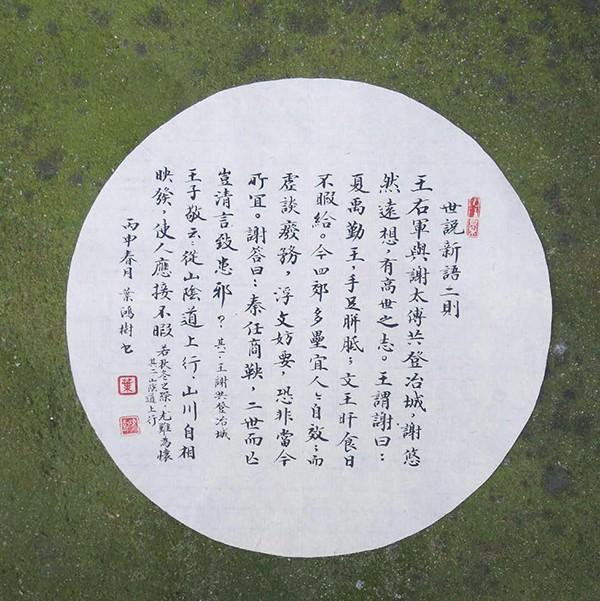 世說新語二則
王右軍與謝太傅共登冶城，謝悠
然遠想，有高世之志。王謂謝曰：
夏禹勤王，手足胼胝；文王旰食日
不暇給。今四郊多壘宜人人自效；而
虛談廢務，浮文妨要，恐非當今
所宜。謝答曰：秦任商鞅，二世而亡
豈清言致患邪？其一王謝共登冶城
王子敬云：從山陰道上行，山川自相
映發，使人應接不暇 若秋冬之際，尤難為懷
其二山陰道上行
丙申春月 葉鴻樹書
葉